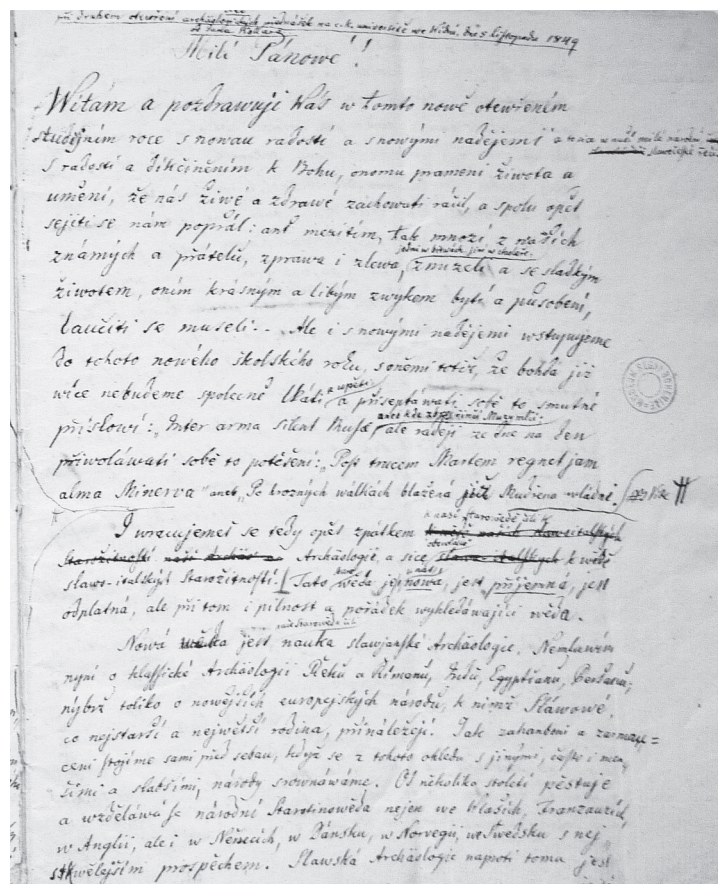 při druhém otevření archäologických přednášek na c.k. universitě we Widni, dne 5 listopadu 1849
od Jana Kollára
Milí Pánowé!
Witám a pozdrawuji Wás w tomto nowě otewřeném
studijním roce s nowau radostí a s nowými nadějemi
s radostí a díkčiněním k Bohu, onomu prameni žiwota a
umění, že nás žiwé a zdrawé zachowati ráčil, a spolu opět
sejíti se nám popřál: ant mezitím, tak mnozí z našich
jední w bitwách jiní w choleře
známých a přátelů, zprawa i zlewa, zmizeli a se sladkým
žiwotem, oním krásným a libým zwykem bytí a působení,
laučiti se museli. - Ale i s nowými nadějemi wstupujeme
do tohoto nowého školského roku, s oněmi totiž, že bohdá již
wíce nebudeme společně lkáti a úpěti a přišeptáwati sobě to smutné
příslowí: „Inter arma silent Musae", ale raději ze dne na den
přiwoláwati sobě to potěšení: „Post trucem Martem regnet jam
alma Minerva" aneb „Po hrozných wálkách blažená již Mudřena wládni.
k naší Starowědě čili k
I wracujemeť se tedy opět zpátkem
Starožitnosti Archäologii, a sice k wědě
slawo-italských Starožitností. Tato wěda je nowa, jest příjemná, jest
odplatná, ale při tom i pilnost a pořádek wyhledáwající wěda.
Nowá jest nauka slawjanské Archäologie. Nemluwím
nyní o klassické Archäologii Řeků a Římanů, Indů, Egyptčanů, Peršanů,
nýbrž toliko o nowějších europejských národů, k nimž Sláwowé,
co nejstarší a největší rodina, přináležejí. Jak zahanbeni a zarmau=
ceni stojíme sami před sebau, když se z tohoto ohledu s jinými, často i men-
šími a slabšími, národy srownáwáme. Od několika století pěstuje
a wzděláwá se národní Starotinowěda nejen we Wlaších, Franzauzích,
w Anglii, ale i w Němcích, w Dánsku, w Norwegii, we Swédsku s nej-
skwělejším prospěchem. Slawská Archäologie naproti tomu jest